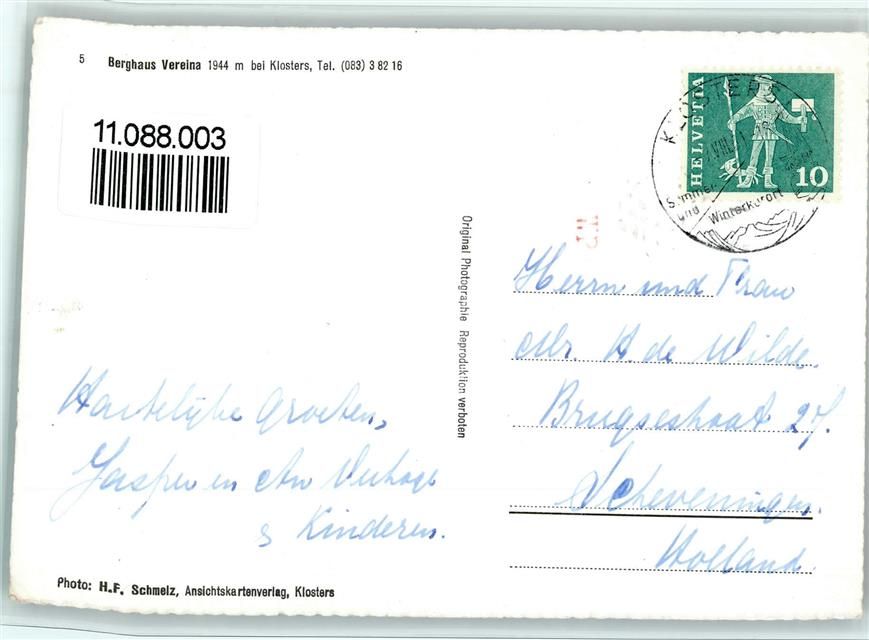 5 Berghaus Vereina 1944 m bei Klosters, Tel. (083) 3 82 16
11.088.003
HELVETIA
10
KLOSTERS
Sommer
und Winterkurort
Original Photographie Reproduktion verboten
Herrn und Frau
Mr. H. de Wilde.
Brugsestraat 27.
Scheveningen.
Holland.
Hartelijke Groeten,
Jasper en An
& Kinderen.
Photo: H.F. Schmelz, Ansichtskartenverlag, Klosters